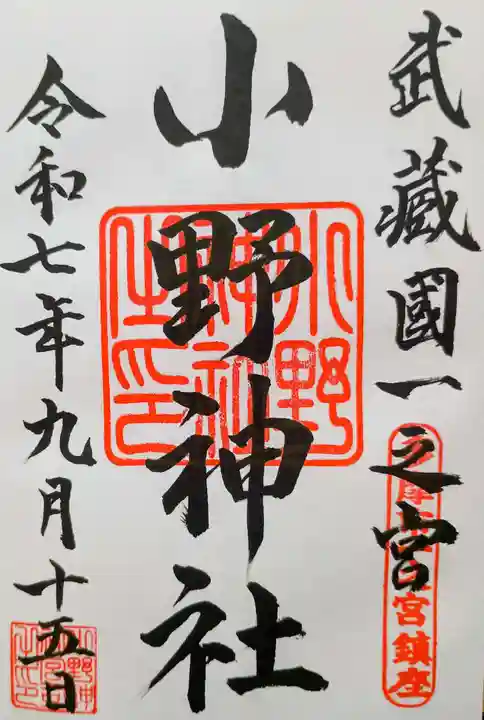 武蔵國一之宮
小野神社
令和七年九月十五日
小野
神社
之印
宮鎮座